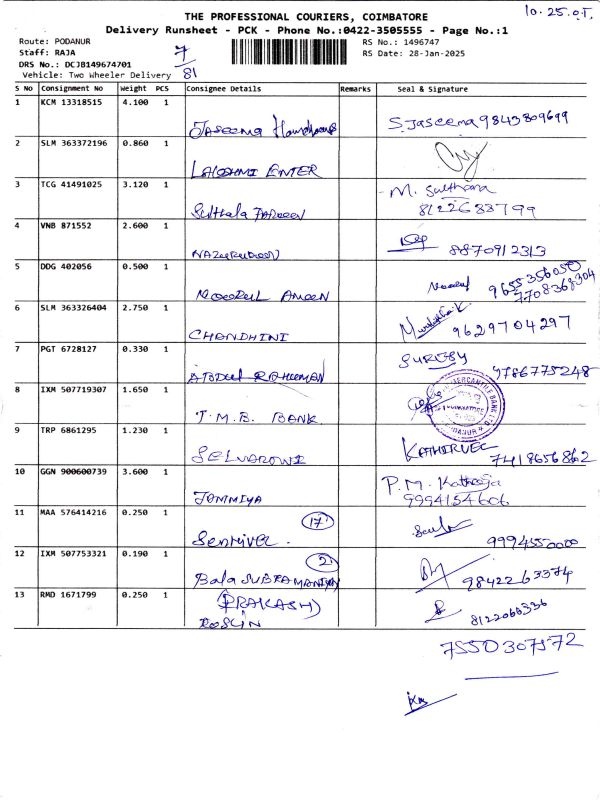 10.25.
THE PROFESSIONAL COURIERS, COIMBATORE
Delivery Runsheet - PCK - Phone No.:0422-3505555 - Page No.:1
Route: PODANUR
Staff: RAJA
DRS No.: DCJB149674701
Vehicle: Two Wheeler Delivery
7
81
RS No.: 1496747
RS Date: 28-Jan-2025
S No Consignment No Weight PCS Consignee Details Remarks Seal & Signature
1 KCM 13318515 4.100 1 Jaseema S.Jaseema 9843809699
2 SLM 363372196 0.860 1 LAKSHMI ENTER
3 TCG 41491025 3.120 1 M. Sulthana
8122683799
4 VNB 871552 2.600 1 8870912313
5 DDG 402056 0.500 1 NOORUL AMEEN 9655356050
7708368304
6 SLM 363326404 2.750 1 CHANDHINI 9629704297
7 PGT 6728127 0.330 1 ABDUL RAHEEMAN 9786775248
8 IXM 507719307 1.650 1 T.M.B. BANK
9 TRP 6861295 1.230 1 KATHIRVEL 7418656862
10 GGN 900600739 3.600 1 JOMMIYA P.M. Katheeja
9994154606
11 MAA 576414216 0.250 1 Senthivel. 17 9994550000
12 IXM 507753321 0.190 1 Bala SUBRAMANIYAN 2 9842263374
13 RMD 1671799 0.250 1 (PRAKASH) 8122066336
ROSLIN
7550307572